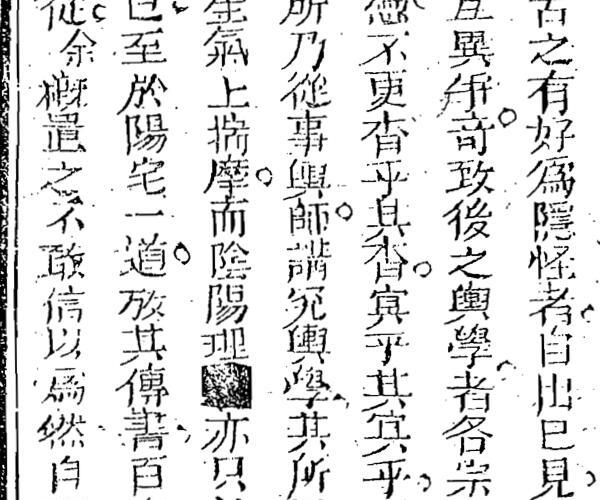 古之有好為隱怪者自出己見
互異爭奇致後之輿學者各崇
不更杳乎其杳㝠乎其㝠乎
所乃從事輿師講究輿學其所
生氣上揣摩而陰陽理亦只
已至於陽宅一道攷其傳書百
從余概置之不敢信以爲然自